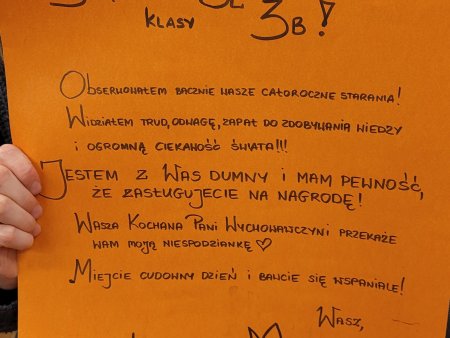 KLASY 3B!
OBSERWOWAŁEM BACZNIE WASZE CAŁOROCZNE STARANIA!
WIDZIAŁEM TRUD, ODWAGĘ, ZAPAŁ DO ZDOBYWANIA WIEDZY
I OGROMNĄ CIEKAWOŚĆ ŚWIATA!!!
JESTEM Z WAS DUMNY I MAM PEWNOŚĆ,
ŻE ZASŁUGUJECIE NA NAGRODĘ!
WASZA KOCHANA PANI WYCHOWAWCZYNI PRZEKAŻE
WAM MOJĄ NIESPODZIANKĘ ♡
MIEJCIE CUDOWNY DZIEŃ I BAWCIE SIĘ WSPANIALE!
WASZ,